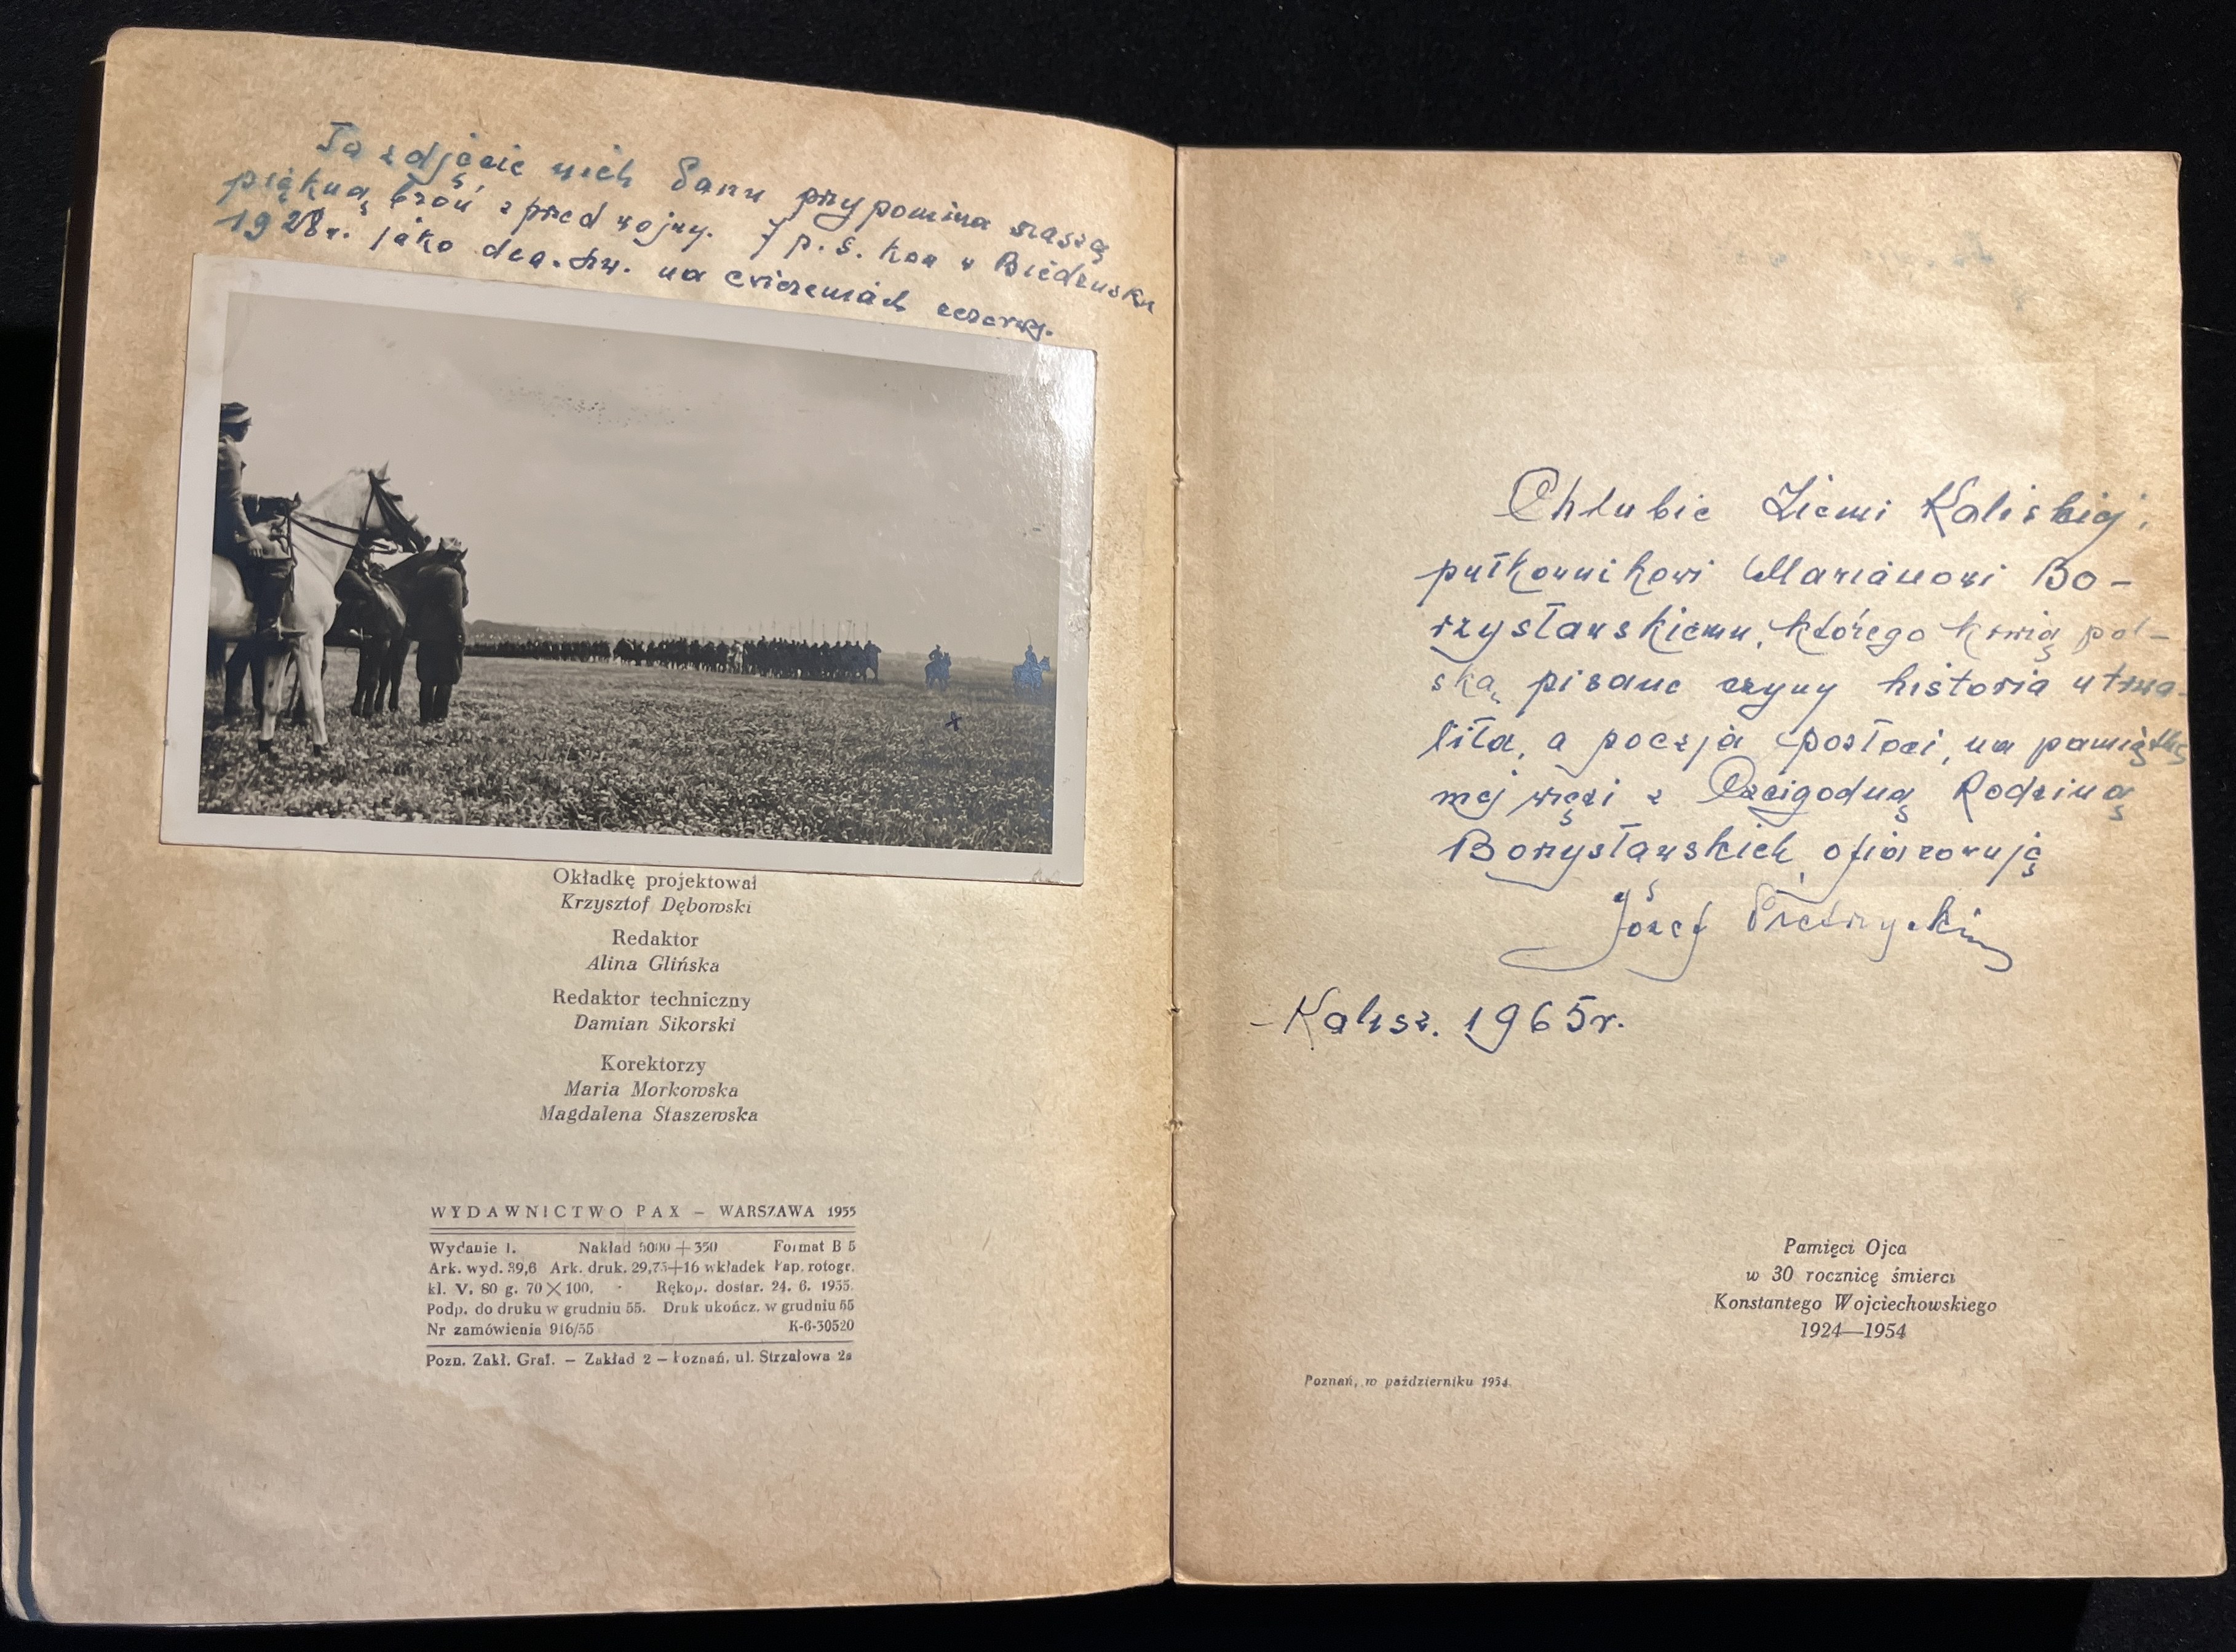 To zdjęcie niech Panu przypomina naszą
piękną broń z przed wojny. 7 p. s. kon w Biedrusku
1928r. jako dca. szw. na ćwiczeniach rezerwy.
Okładkę projektował
Krzysztof Dębowski
Redaktor
Alina Glińska
Redaktor techniczny
Damian Sikorski
Korektorzy
Maria Morkowska
Magdalena Staszewska
WYDAWNICTWO PAX – WARSZAWA 1955
Wydanie I. Nakład 5000+350 Format B 5
Ark. wyd. 39,6 Ark. druk. 29,75+16 wkładek Pap. rotogr.
kl. V. 80 g. 70×100. Rękop. dostar. 24. 6. 1955.
Podp. do druku w grudniu 55. Druk ukończ. w grudniu 55
Nr zamówienia 916/55 K-6-30520
Pozn. Zakł. Graf. – Zakład 2 – Poznań, ul. Strzałowa 2a
Chlubie Ziemi Kaliskiej,
pułkownikowi Marianowi Bo-
rzysławskiemu, którego krwią pol-
ską pisane czyny historia utrwa-
liła, a poezja pozłoci, na pamiątkę
mej więzi z Czcigodną Rodziną
Borzysławskich, ofiarowuję
Józef
Kalisz. 1965r.
Pamięci Ojca
w 30 rocznicę śmierci
Konstantego Wojciechowskiego
1924—1954
Poznań, w październiku 1954.